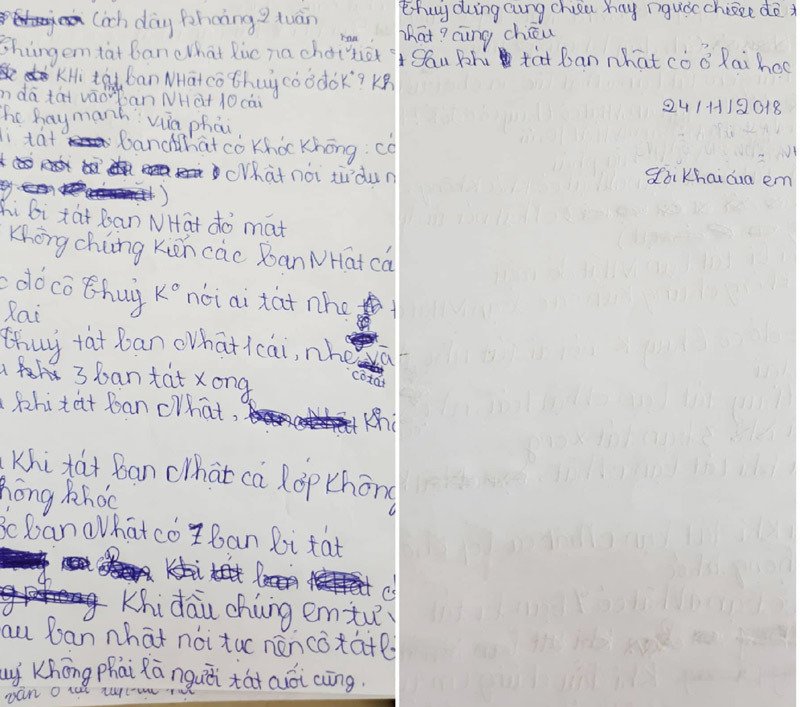 Cách đây khoảng 2 tuần
Chúng em tát bạn Nhật lúc ra chơi tiết
Khi tát bạn Nhật có Thuỷ có ở đó K°?
đã tát vào bạn Nhật 10 cái
nhẹ hay mạnh: vừa phải
tát bạn Nhật có khóc không: có
Nhật nói từ
bị tát bạn Nhật đỏ mắt
Không chứng kiến các bạn Nhật
đó cô Thuỷ K° nói ai tát nhẹ
lại
Thuỷ tát bạn Nhật 1 cái, nhẹ và
cô tát
3 bạn tát xong
khi tát bạn Nhật,
Khi tát bạn Nhật cả lớp không
không khóc
bạn Nhật có 7 bạn bị tát
Khi đầu chúng em tự
bạn nhật nói tục nên cô tát
không phải là người tát cuối cùng.
vẫn ở lại
Thuỷ đứng cùng chiều hay ngược chiều để
nhật? cùng chiều
+ Sau khi tát bạn nhật có ở lại học
24/11/2018
Lời khai của em